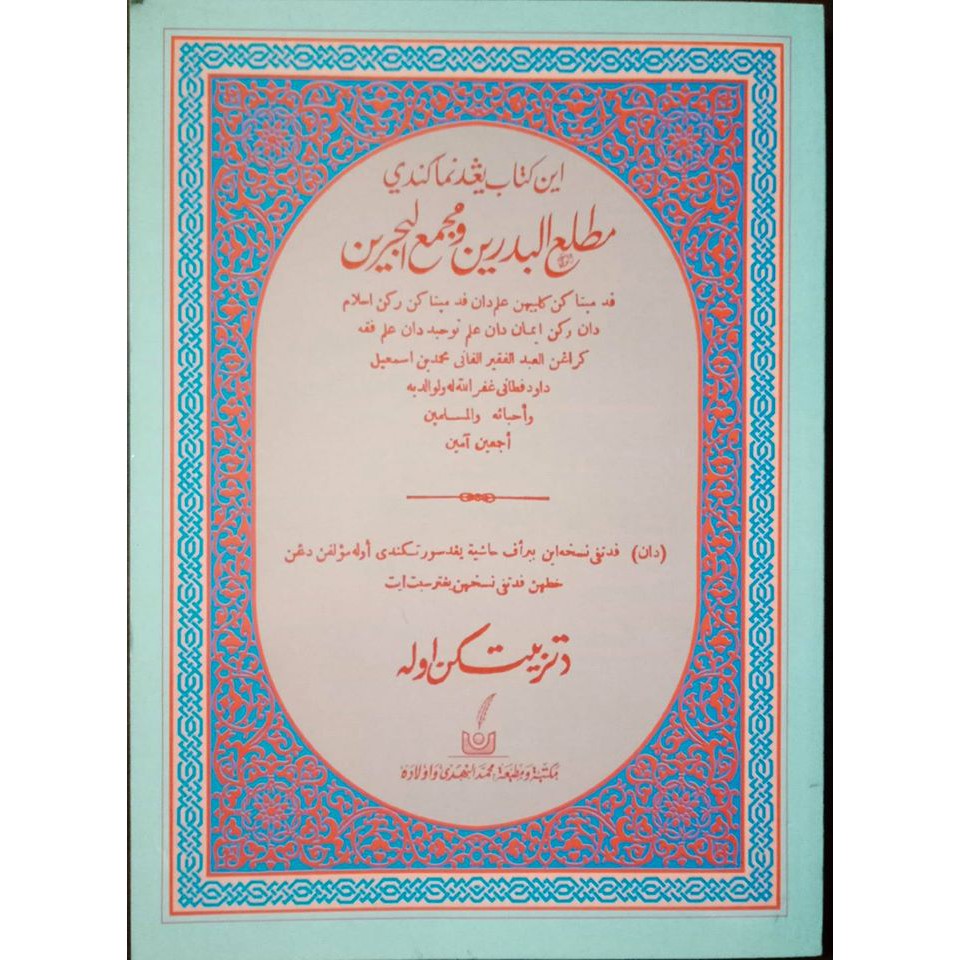 اين كتاب يڠدنماكندي
مطلع البدرين ومجمع البحرين
ڤد مپتاكن كلبيهن علم دان ڤد مپتاكن ركن اسلام
دان ركن ايمان دان علم توحيد دان علم فقه
كراڠن العبد الفقير الفاني محمد بن اسمعيل
داود فطاني غفر الله له ولوالديه
وأحبائه والمسلمين
أجمعين آمين
(دان) ڤد تڤي نسخه اين ببراڤ حاشية يڠدسورتكندي أوله مؤلفڽ دڠن
خطڽ ڤد تڤي نسخهڽ يڠترسبت ايت
دتربيتكن اوله
مكتبة ومطبعة محمد النهدي واولاده